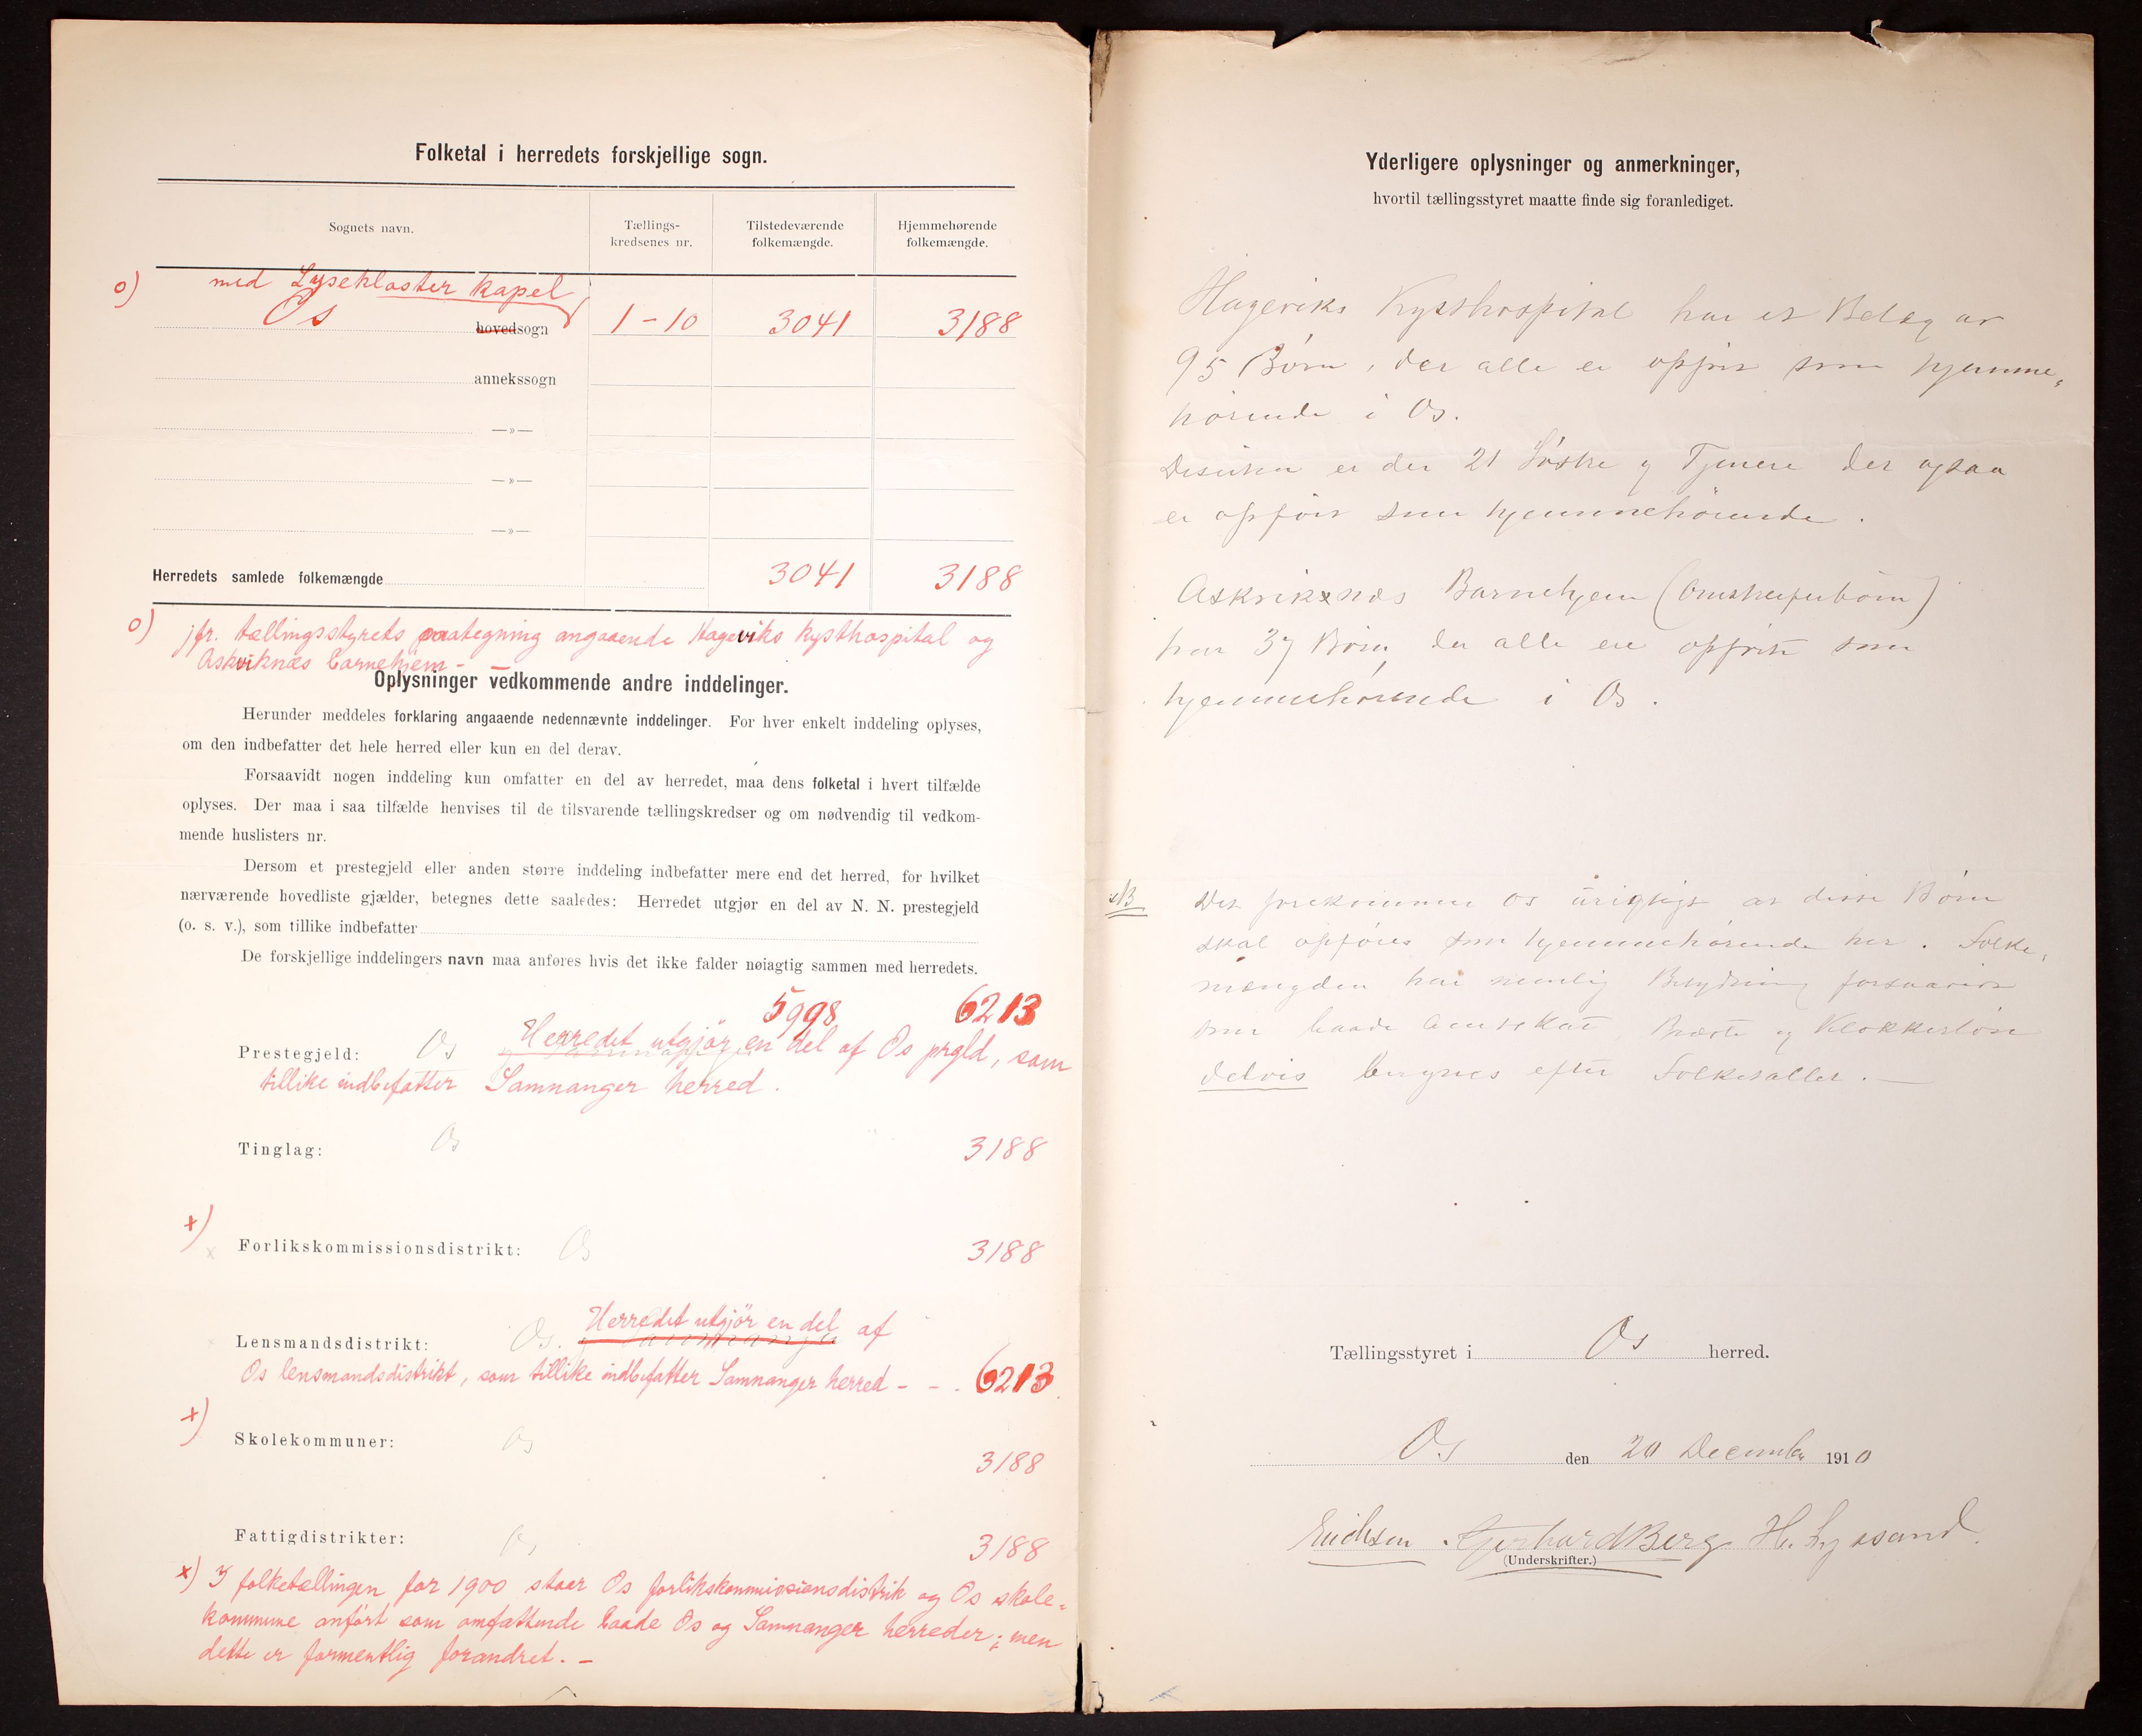 Folketal i herredets forskjellige sogn.
Sognets navn.
Tællings-
kredsenes nr.
Tilstedeværende
folkemængde.
Hjemmehørende
folkemængde.
o) med Lysekloster kapel
Os hovedsogn 1-10 3041 3188
annekssogn
—»—
—»—
—»—
Herredets samlede folkemængde 3041 3188
o) jfr. tællingsstyrets paategning angaaende Hageviks kysthospital og
Askviknæs barnehjem -
Oplysninger vedkommende andre inddelinger.
Herunder meddeles forklaring angaaende nedennævnte inddelinger. For hver enkelt inddeling oplyses,
om den indbefatter det hele herred eller kun en del derav.
Forsaavidt nogen inddeling kun omfatter en del av herredet, maa dens folketal i hvert tilfælde
oplyses. Der maa i saa tilfælde henvises til de tilsvarende tællingskredser og om nødvendig til vedkom-
mende huslisters nr.
Dersom et prestegjeld eller anden større inddeling indbefatter mere end det herred, for hvilket
nærværende hovedliste gjælder, betegnes dette saaledes: Herredet utgjør en del av N. N. prestegjeld
(o. s. v.), som tillike indbefatter
De forskjellige inddelingers navn maa anføres hvis det ikke falder nøiagtig sammen med herredets.
5998 6213
Prestegjeld: Os Herredet utgjør en del af Os prgld, som
tillike indbefatter Samnanger herred.
Tinglag: Os 3188
x)
x Forlikskommissionsdistrikt: Os 3188
Lensmandsdistrikt: Os. Herredet utgjör en del af
Os lensmandsdistrikt, som tillike indbefatter Samnanger herred - - . 6213
x)
Skolekommuner: Os 3188
Fattigdistrikter: Os 3188
x) I folketællingen for 1900 staar Os forlikskommissionsdistrik og Os skole-
kommune anført som omfattende baade Os og Samnanger herreder; men
dette er formentlig forandret. -
Yderligere oplysninger og anmerkninger,
hvortil tællingsstyret maatte finde sig foranlediget.
Hageviks Kysthospital har et Belæg av
95 Børn, der alle er opført som hjemme-
hørende i Os.
Desuten er der 21 Søstre og Tjenere der ogsaa
er opført som hjemmehørende.
Askviknæs Barnehjem (Omstreiferbörn)
har 37 Børn, der alle ere opført som
hjemmehørende i Os.
NB Det forekommer os urigtigt at disse Børn
skal opføres som hjemmehørende her. Folke-
mængden har nemlig Betydning forsaavidt
som baade Amtskat, Præste og Klokkerløn
delvis beregnes efter Folketallet. -
Tællingsstyret i Os herred.
Os den 20 December 1910
Erichsen. Gerhard Berg H. Lyssand.
(Underskrifter.)